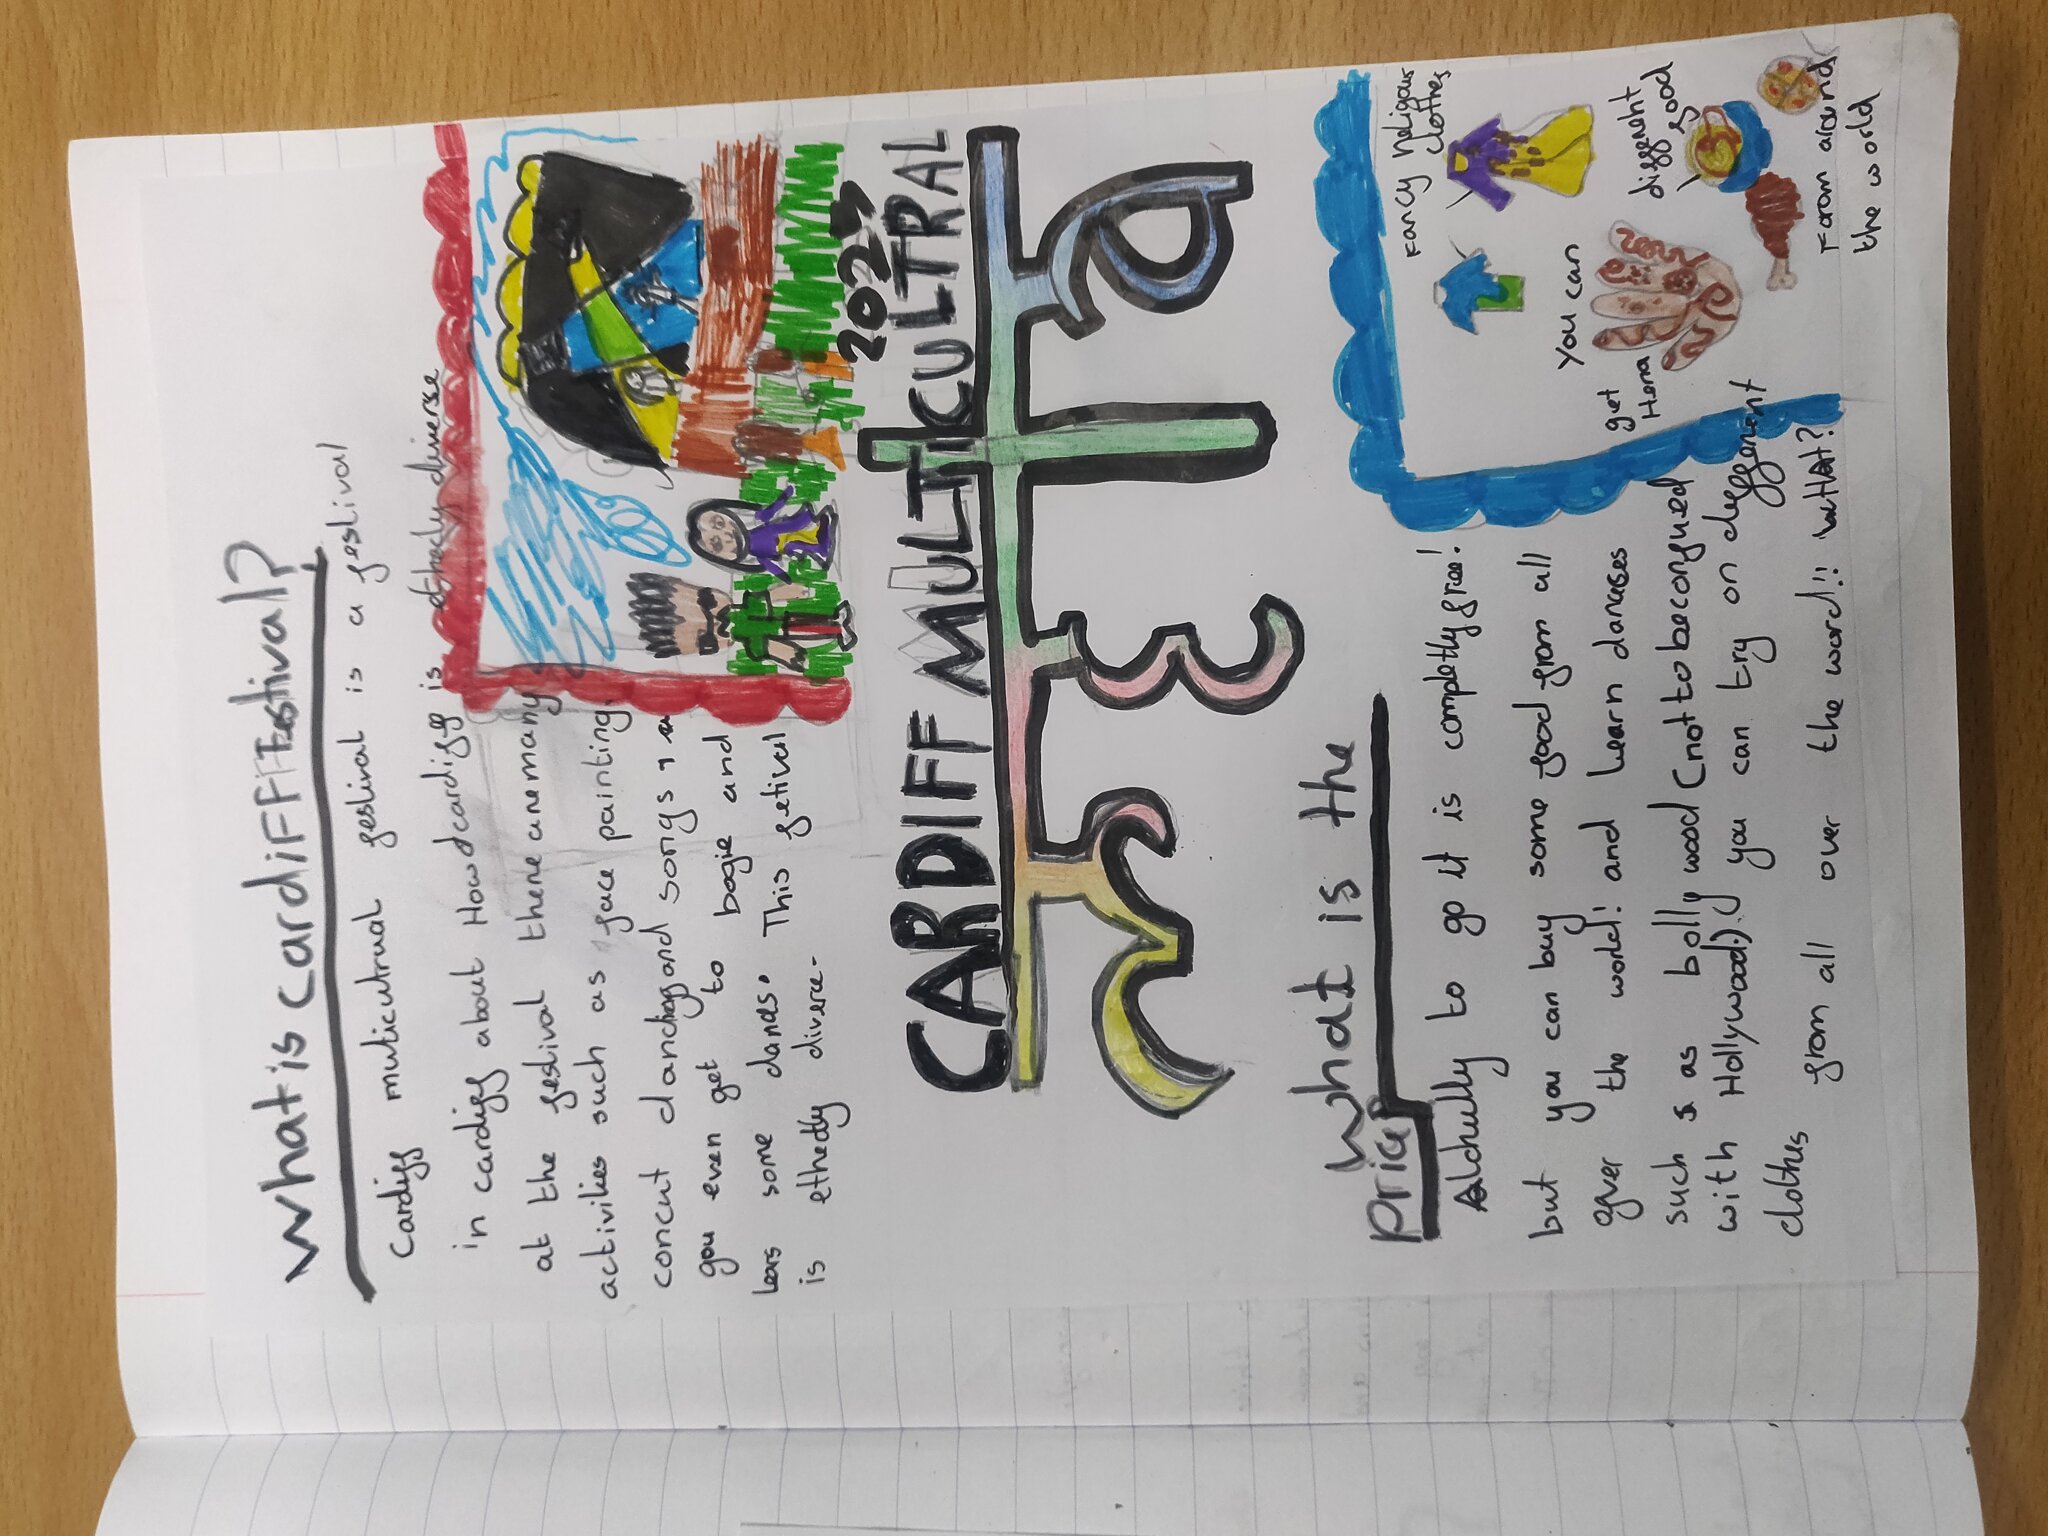 What is cardiFF Festival?
Cardiff muticutrual festival is a festival
in cardiff about How cardiff is ethecly diverse
at the festival there are many
activities such as face painting,
concut dancing and songs,
you even get to bogie and
lears some dances. This fetival
is ethectly diverce.
2023
CARDIFF MULTICULTRAL
मेला
What is the
price?
Alchully to go it is completly free!
but you can buy some food from all
over the world! and learn danceses
such as bolly wood (not to be confued
with Hollywood.). you can try on defferent
clothes
from all over the word!! WHAt?
Fancy Religous
clothes
You can
get
Hena
different
food
From around
the world